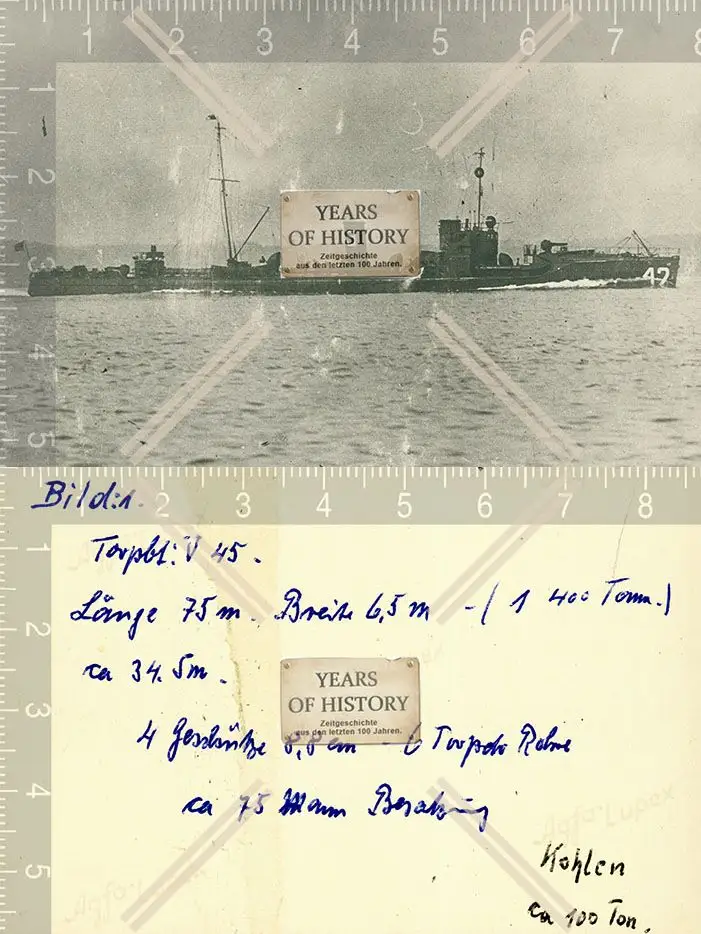 1 2 3 4 5 6 7 8
1
2
3
4
5
YEARS
OF HISTORY
Zeitgeschichte
aus den letzten 100 Jahren.
42
Bild: 1.
2 3 4 5 6 7 8
1
2
3
4
5
Torpbt: V 45.
Länge 75 m. Breite 6,5 m - ( 1 400 Tonn.)
ca 34.5m.
YEARS
OF HISTORY
Zeitgeschichte
aus den letzten 100 Jahren.
4 Geschütze 8,8 cm - 6 Torpedo Rohre
ca 75 Mann Besatzung
Agfa-Lupex
Kohlen
ca 100 Ton.